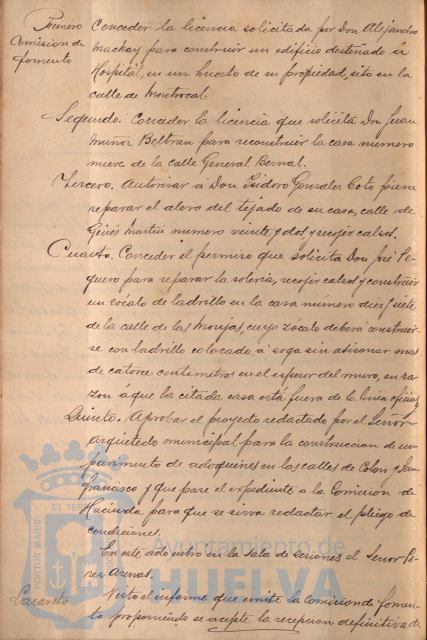 Primero Conceder la licencia solicitada por Don Alejandro
Comision de Mackay para construir un edificio destinado á
fomento Hospital, en un huerto de su propiedad, sito en la
calle de Montrocal.
Segundo. Conceder la licencia que solicita Don Juan
Muñoz Beltran para reconstruir la casa numero
nueve de la calle General Bernal.
Tercero. Autorizar á Don Isidoro Gonzalez Coto para
reparar el alero del tejado de su casa, calle de
Ginés Martin numero veinte y dos, y recojer calsos.
Cuarto. Conceder el permiso que solicita Don José Se-
quero para reparar la soleria, recojer calsos y construir
un zócalo de ladrillo en la casa número diez y siete
de la calle de las Monjas, cuyo zócalo deberá construir-
se con ladrillo colocado á soga sin adicionar mas
de catorce centimetros en el espesor del muro, en ra-
zon á que la citada casa está fuera de la linea oficial
Quinto. Aprobar el proyecto redactado por el Señor
arquitecto municipal para la construccion de un
pavimento de adoquines en las calles de Colon y San
Francisco y que pase el expediente a la Comision de
Hacienda para que se sirva redactar el pliego de
condiciones.
En este acto entró en la sala de sesiones el Señor Pe-
rez Arenas.
Lazareto Visto el informe que emite la Comision de fomen-
to proponiendo se acepte la recepcion definitiva de
PORTUS MARIS
ET TERRAE
Ayuntamiento de
HUELVA